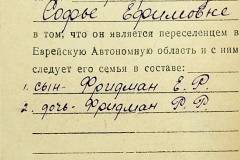 Софье Ефимовне
в том, что он является переселенцем в
Еврейскую Автономную область и с ним
следует его семья в составе:
1. сын - Фридман Е. Р.
2. дочь - Фридман Р. Р.